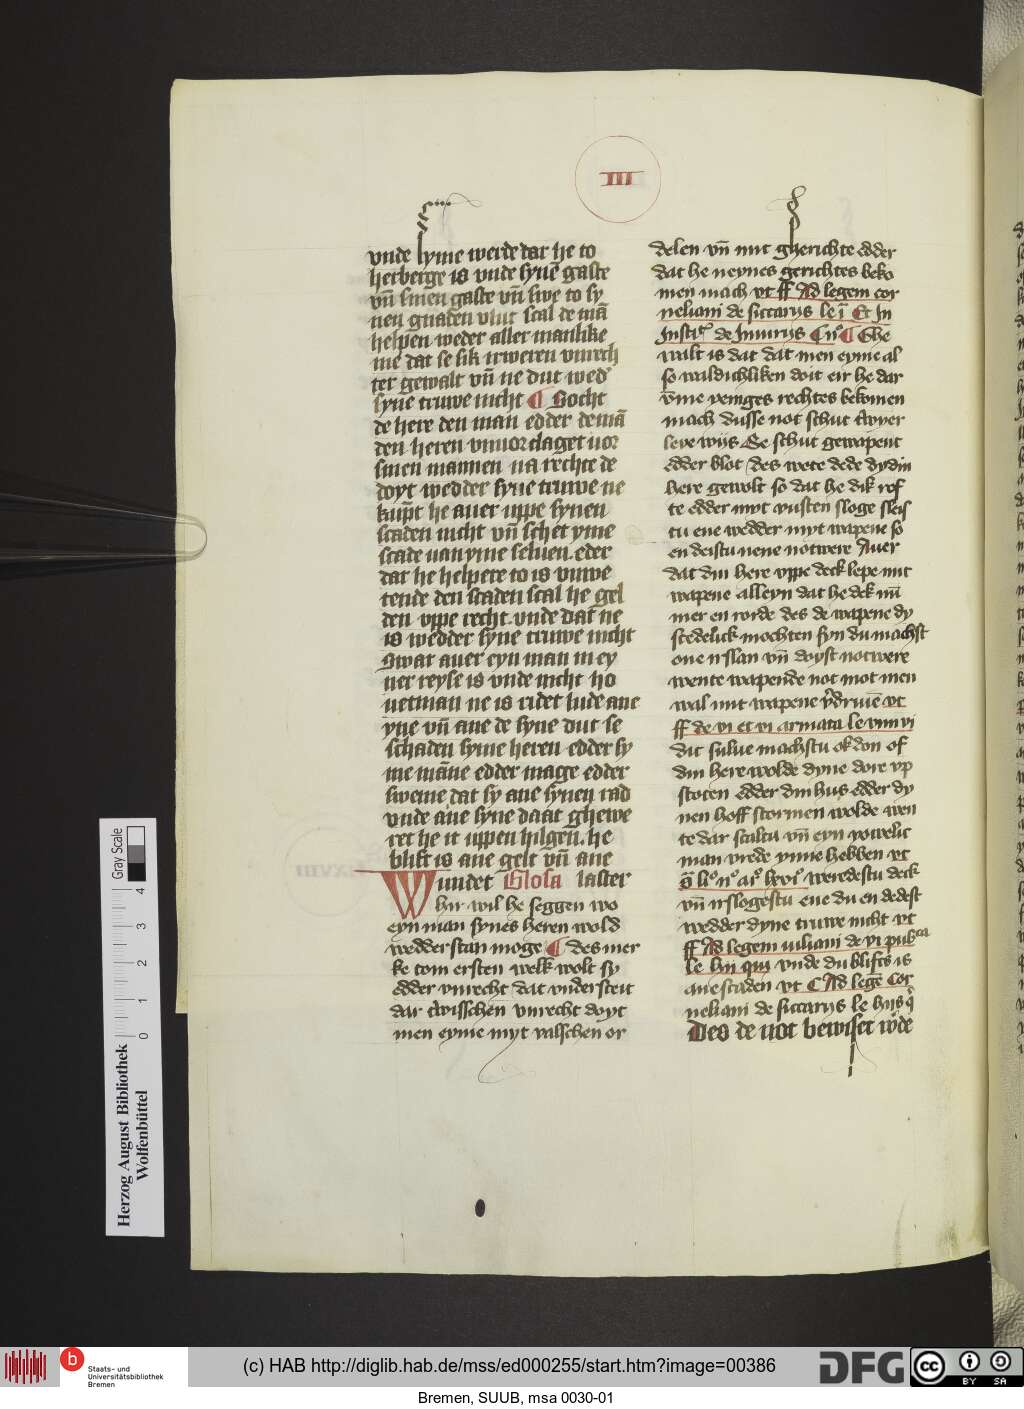 III
vnde syme werde dat he to
herberge is vnde synē gaste
vn̄ sinen gaste vn̄ swe to sy
nen gnaden vlut scal de mā
helpen weder aller manlike
me dat se sik irweren vnrech
ter gewalt vn̄ ne dut wed'
syne truwe nicht ¶ Socht
de here den man edder de mā
den heren vnuorclaget uor
sinen mannen na rechte he
doyt wedder syne truwe ne
kūpt he auer uppe synen
scaden nicht vn̄ schet yme
scade uan yme seluen. eder
dat he helpere to is vnwe
tende den scaden scal he gel
den vppe recht. vnde dat ne
is wedder syne truwe nicht
Swar auer eyn man in ey
ner reyse is vnde nicht ho
uetman ne is ridet lude ane
yne vn̄ ane de syne dut se
schaden syme heren edder sy
me māne edder mage edder
sweme dat sy ane synen rad
vnde ane syne daat ghewe
ret he it uppen hilgen. he
blift is ane gelt vn̄ ane
wundet Glosa laster
Hir wil he seggen wo
eyn man synes heren wold
wedderstan moge ¶ des mer
ke tom ersten welk wolt sy
edder vnrecht dat vndersteit
dar twisschen vnrecht doyt
men eyme myt valschen or
delen vn̄ mit gherichte edder
dat he neynes gerichtes beko
men mach vt ff Ad legem cor
neliani de siccarys le ī Et In
Instit' de Iniurys C n° ¶ Ghe
walt is dat dat men eyme al
so waldichliken doit eir he dar
vme yeniges rechtes bekomen
mach dusse not schut twyer
leye wijs Se schut gewapent
edder blot des wete dede dy din
here gewolt so dat he dik rof
te edder myt vusten sloge sleis
tu ene wedder myt wapene so
en deistu nene notwere Auer
dat din here vppe deck lepe mit
wapene alleyn dat he dek nū
mer en rorde des de wapene dy
stedelick mochten syn du machst
one irslan vn̄ doyst notwere
wente wapende not mot men
wal mit wapene v'druiē vt
ff de vi et vi armata le vnn vi
dit sulue machstu ok don of
din here wolde dyne dore vp
stoten edder din hus edder dy
nen hoff stormen wolde wen
te dar scaltu vn̄ eyn yowelic
man vrede ynne hebben vt
s̄ li° n° ar° lxvi° weredestu deck
vn̄ irslogestu ene du en dedest
wedder dyne truwe nicht vt
ff Ad legem iuliani de vi pub^ca
le hii qui vnde du blifts is
ane staden vt C Ad legē Cor
neliani de siccarys le hijs q̄
Des de uot bewiset w'de
Gray Scale
0 1 2 3 4
Herzog August Bibliothek
Wolfenbüttel
b
Staats- und
Universitätsbibliothek
Bremen
(c) HAB http://diglib.hab.de/mss/ed000255/start.htm?image=00386
DFG
cc
BY SA
Bremen, SUUB, msa 0030-01